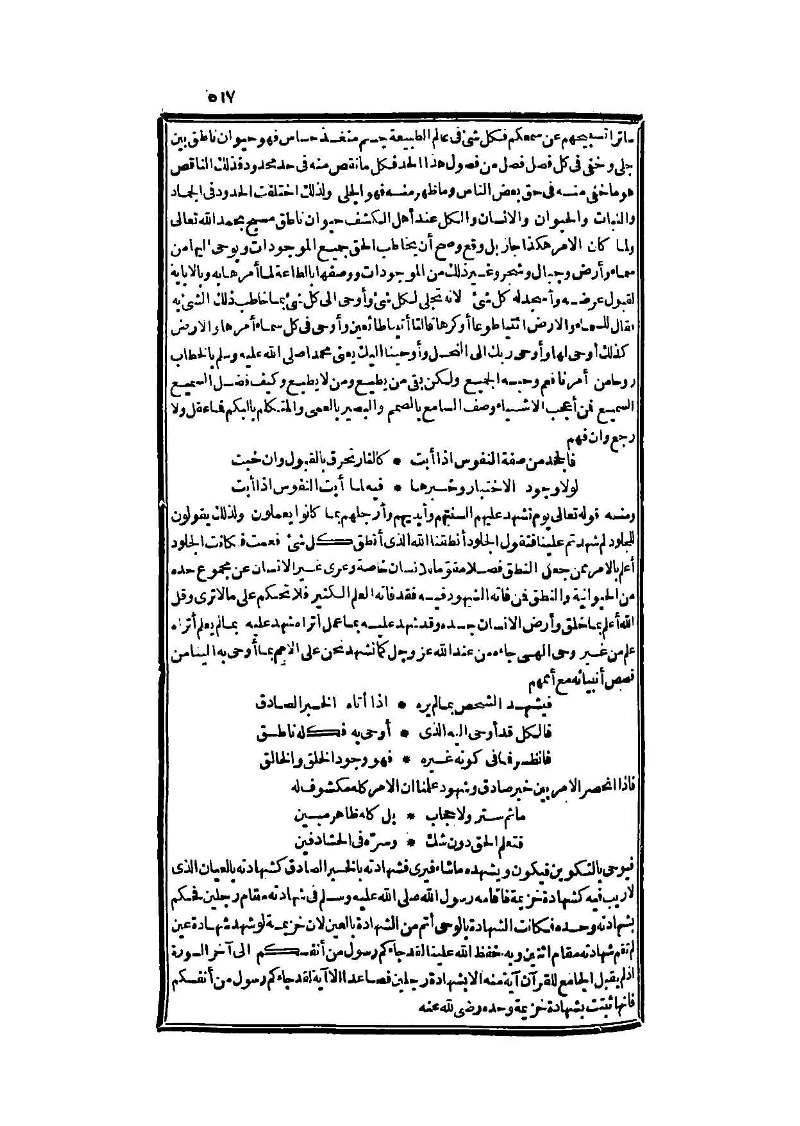 ٥١٧
ماترا تسبيحهم عن سمعكم فكل شئ فى عالم الطبيعة جسم متغذ حساس فهو حيوان ناطق بين
جلى وخفى فى كل فصل فصل من فصول هذا الحد فكل مانقص منه فى حد محدود فذلك الناقص
هو ماخفى منه فى حق بعض الناس وماظهر منه فهو الجلى ولذلك اختلفت الحدود فى الجماد
والنبات والحيوان والانسان والكل عند أهل الكشف حيوان ناطق مسبح بحمد الله تعالى
ولما كان الامر هكذا جاز بل وقع وصح أن يخاطب الحق جميع الموجودات ويوحى اليها من
سماء وأرض وجبال وشجر وغير ذلك من الموجودات ووصفها بالطاعة لما أمرها به وبالاباية
لقبول عرضه وأسجد له كل شئ لانه تجلى لكل شئ وأوحى الى كل شئ بما خاطب ذلك الشئ به
فقال للسماء والارض ائتيا طوعا أو كرها قالتا أتينا طائعين وأوحى فى كل سماء أمرها والارض
كذلك أوحى لها وأوحى ربك الى النحل وأوحينا اليك يعنى محمدا صلى الله عليه وسلم بالخطاب
روحا من أمرنا فعم وحيه الجميع ولكن بقى من يطيع ومن لا يطيع وكيف فضل السميع
السميع فن أعجب الاشياء وصف السامع بالصمم والبصير بالعمى والمتكلم بالبكم فما عقل ولا
رجع وان فهم
فالجحد من صفة النفوس اذا أبت * كالنار تحرق بالقبول وان خبت
لولا وجود الاختبار وخبرها * فيه لما أبت النفوس اذا أبت
ومنه قوله تعالى يوم تشهد عليهم ألسنتهم وأيديهم وأرجلهم بما كانوا يعملون ولذلك يقولون
للجلود لم شهدتم علينا فتقول الجلود أنطقنا الله الذى أنطق كل شئ فعمت فكانت الجلود
أعلم بالامر ممن جعل النطق فصلا مقوما للانسان خاصة وعرى غير الانسان عن مجموع حده
من الحيوانية والنطق فن فاته الشهود فيه فقد فاته العلم الكثير فلا تحكم على مالا ترى وقل
الله أعلم بما خلق وأرض الانسان جسده وقد شهد عليه بما عمل أتراه شهد عليه بمالم يعلم أتراه
علم من غير وحى الهى جاءه من عند الله عز وجل كما نشهد نحن على الامم بما أوحى به الينا من
قصص أنبيائه مع أممهم
فيشهد الشخص بمالم يره * اذا أتاه الخبر الصادق
فالكل قد أوحى اليه الذى * أوحى به فكله ناطق
فانظر فما فى كونه غيره * فهو وجود الخلق والخالق
فاذا انحصر الامر بين خبر صادق وشهود علمنا ان الامر كله مكشوف له
ماثم ستر ولا حجاب * بل كله ظاهر مبين
فتعلم الحق دون شك * وسره فى الحشا دفين
فيوحى بالتكوين فيكون ويشهده ماشاء فيرى فشهادته بالخبر الصادق كشهادته بالعيان الذى
لاريب فيه كشهادة خزيمة فاقامه رسول الله صلى الله عليه وسلم فى شهادته مقام رجلين فحكم
بشهادته وحده فكانت الشهادة بالوحى أتم من الشهادة بالعين لان خزيمة لو شهد شهادة عين
لم تقم شهادته مقام اثنين وبه حفظ الله علينا لقد جاءكم رسول من أنفسكم الى آخر السورة
اذ لم يقبل الجامع للقرآن آية منه الا بشهادة رجلين فصاعدا الا آية لقد جاءكم رسول من أنفسكم
فانها ثبتت بشهادة خزيمة وحده رضى الله عنه